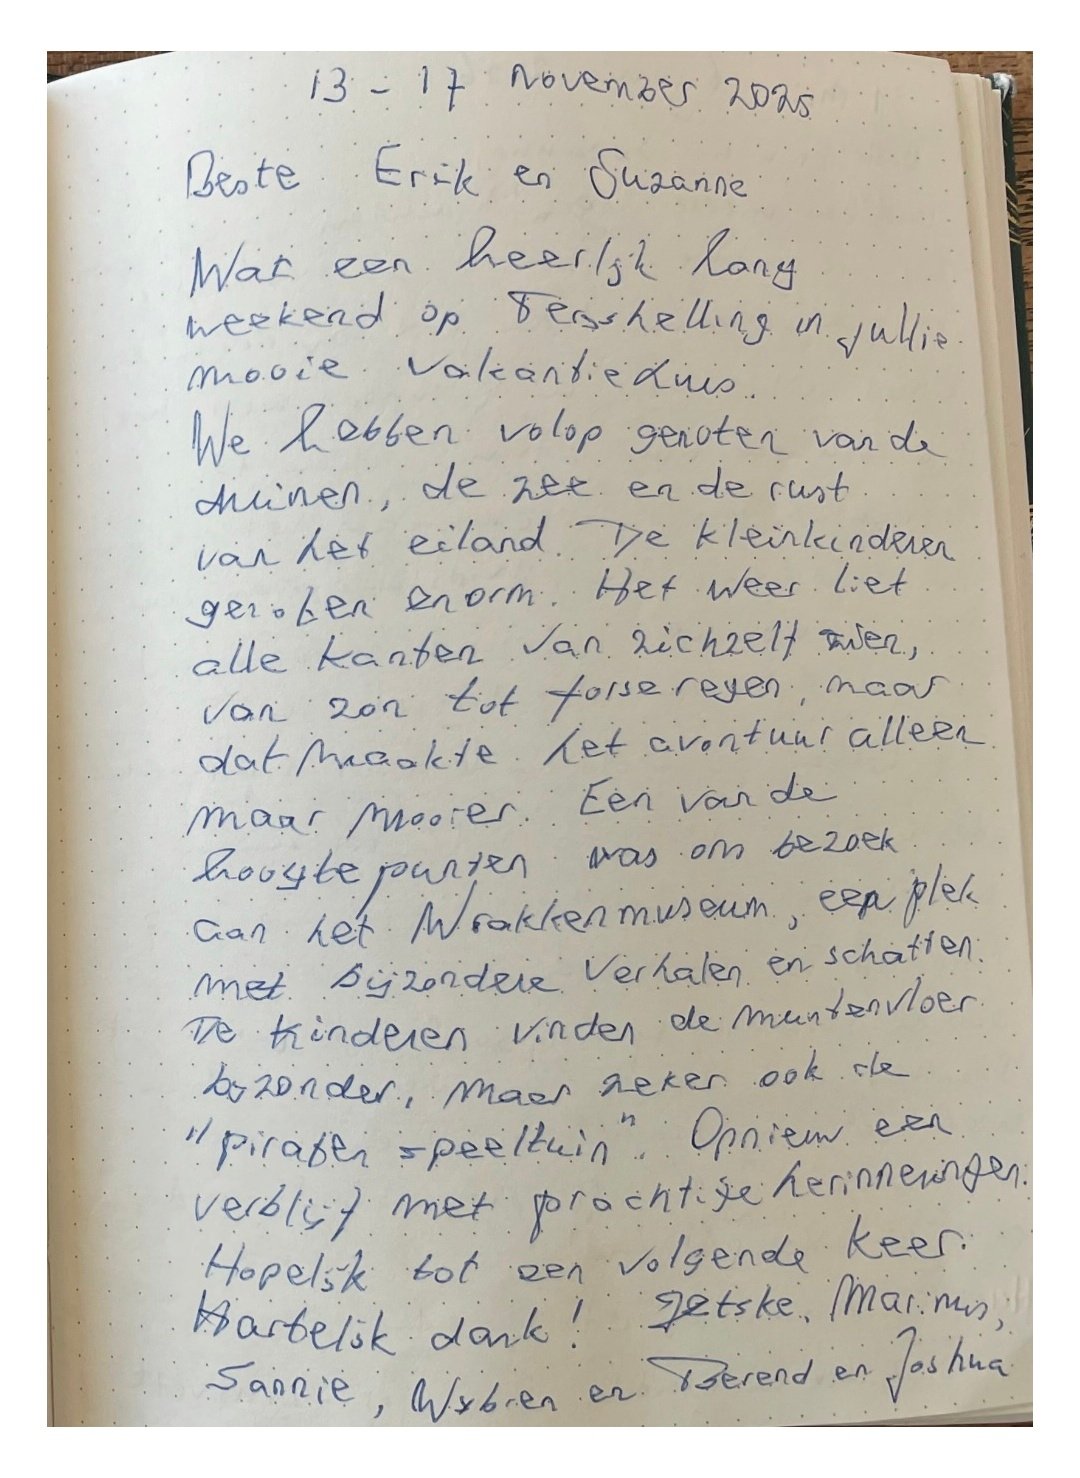 13 - 17 november 2025
Beste Erik en Suzanne
Wat een heerlijk lang
weekend op Terschelling in jullie
mooie vakantiehuis.
We hebben volop genoten van de
duinen, de zee en de rust
van het eiland. De kleinkinderen
genoten enorm. Het weer liet
alle kanten van zichzelf zien,
van zon tot forse regen, maar
dat maakte het avontuur alleen
maar mooier. Een van de
hoogtepunten was ons bezoek
aan het Wrakkenmuseum, een plek
met bijzondere verhalen en schatten.
De kinderen vinden de muntenvloer
bijzonder, maar zeker ook de
"piraten speeltuin". Opnieuw een
verblijf met prachtige herinneringen.
Hopelijk tot een volgende keer.
Hartelijk dank! Jetske, Marinus,
Sannie, Wybren en Berend en Joshua